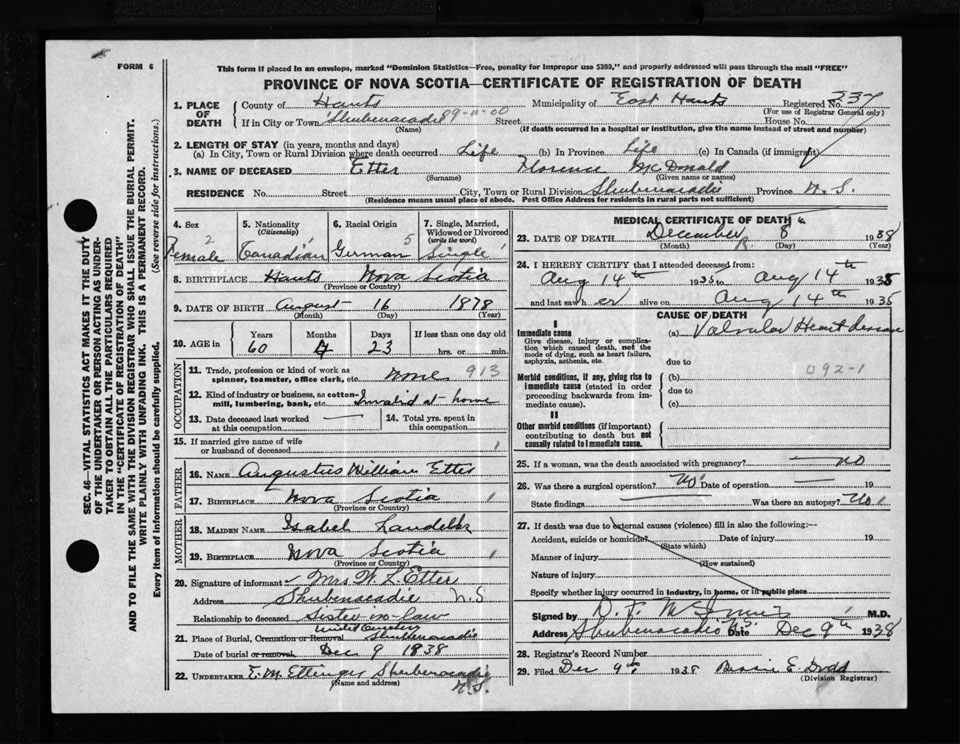 FORM 6
This form if placed in an envelope, marked "Dominion Statistics—Free, penalty for improper use $300," and properly addressed will pass through the mail "FREE"
PROVINCE OF NOVA SCOTIA—CERTIFICATE OF REGISTRATION OF DEATH
1. PLACE OF DEATH
County of Hants Municipality of East Hants Registered No. 237
(For use of Registrar General only)
If in City or Town Shubenacadie 89-11-00 Street House No.
(Name) (If death occurred in a hospital or institution, give the name instead of street and number)
2. LENGTH OF STAY (in years, months and days)
(a) In City, Town or Rural Division where death occurred Life (b) In Province Life (c) In Canada (if immigrant)
3. NAME OF DECEASED Etter Florence McDonald
(Surname) (Given name or names)
RESIDENCE No. Street City, Town or Rural Division Shubenacadie Province N.S.
(Residence means usual place of abode. Post Office Address for residents in rural parts not sufficient)
4. Sex
2
Female
5. Nationality
(Citizenship)
Canadian
6. Racial Origin
5
German
7. Single, Married, Widowed or Divorced
(write the word)
Single
8. BIRTHPLACE Hants Nova Scotia
(Province or Country)
9. DATE OF BIRTH August 16 1878
(Month) (Day) (Year)
10. AGE in
Years Months Days If less than one day old
60 23 hrs. or min.
OCCUPATION
11. Trade, profession or kind of work as
spinner, teamster, office clerk, etc. none 913
12. Kind of industry or business, as cotton-
mill, lumbering, bank, etc. Invalid at home
13. Date deceased last worked
at this occupation
14. Total yrs. spent in
this occupation
15. If married give name of wife
or husband of deceased 1
FATHER
16. NAME Augustus William Etter
17. BIRTHPLACE Nova Scotia 1
(Province or Country)
MOTHER
18. MAIDEN NAME Isabel
19. BIRTHPLACE Nova Scotia 1
(Province or Country)
20. Signature of informant Mrs W. L. Etter
Address Shubenacadie N.S
Relationship to deceased Sister in law
United Cemetery
21. Place of Burial, Cremation or Removal Shubenacadie
Date of burial or removal Dec 9 1838
22. UNDERTAKER E. M. Ettinger Shubenacadie
(Name and address) N.S.
MEDICAL CERTIFICATE OF DEATH
23. DATE OF DEATH December 8th 1938
(Month) R (Day) (Year)
24. I HEREBY CERTIFY that I attended deceased from:
Aug 14th 1935 to Aug 14th 1935
and last saw her alive on Aug 14th 1935
CAUSE OF DEATH
I
Immediate cause (a) Valvular Heart disease
Give disease, injury or complica-
tion which caused death, not the
mode of dying, such as heart failure,
asphyxia, asthenia, etc.
due to
Morbid conditions, if any, giving rise to
immediate cause (stated in order
proceeding backwards from im-
mediate cause).
(b) 092-1
due to
(c)
II
Other morbid conditions (if important)
contributing to death but not
causally related to immediate cause.
25. If a woman, was the death associated with pregnancy? no
26. Was there a surgical operation? no Date of operation 19
State findings Was there an autopsy? No 1
27. If death was due to external causes (violence) fill in also the following:—
Accident, suicide or homicide? Date of injury 19
(State which)
Manner of injury
(How sustained)
Nature of injury
Specify whether injury occurred in industry, in home, or in public place
Signed by D. F. McInnis M.D.
Address Shubenacadie N.S. Date Dec 9th 1938
28. Registrar's Record Number
29. Filed Dec 9th 1938 Bessie E. Dodd
(Division Registrar)
SEC. 46—VITAL STATISTICS ACT MAKES IT THE DUTY
OF THE UNDERTAKER OR PERSON ACTING AS UNDER-
TAKER TO OBTAIN ALL THE PARTICULARS REQUIRED
IN THE "CERTIFICATE OF REGISTRATION OF DEATH"
AND TO FILE THE SAME WITH THE DIVISION REGISTRAR WHO SHALL ISSUE THE BURIAL PERMIT.
WRITE PLAINLY WITH UNFADING INK. THIS IS A PERMANENT RECORD.
Every item of Information should be carefully supplied. (See reverse side for instructions.)